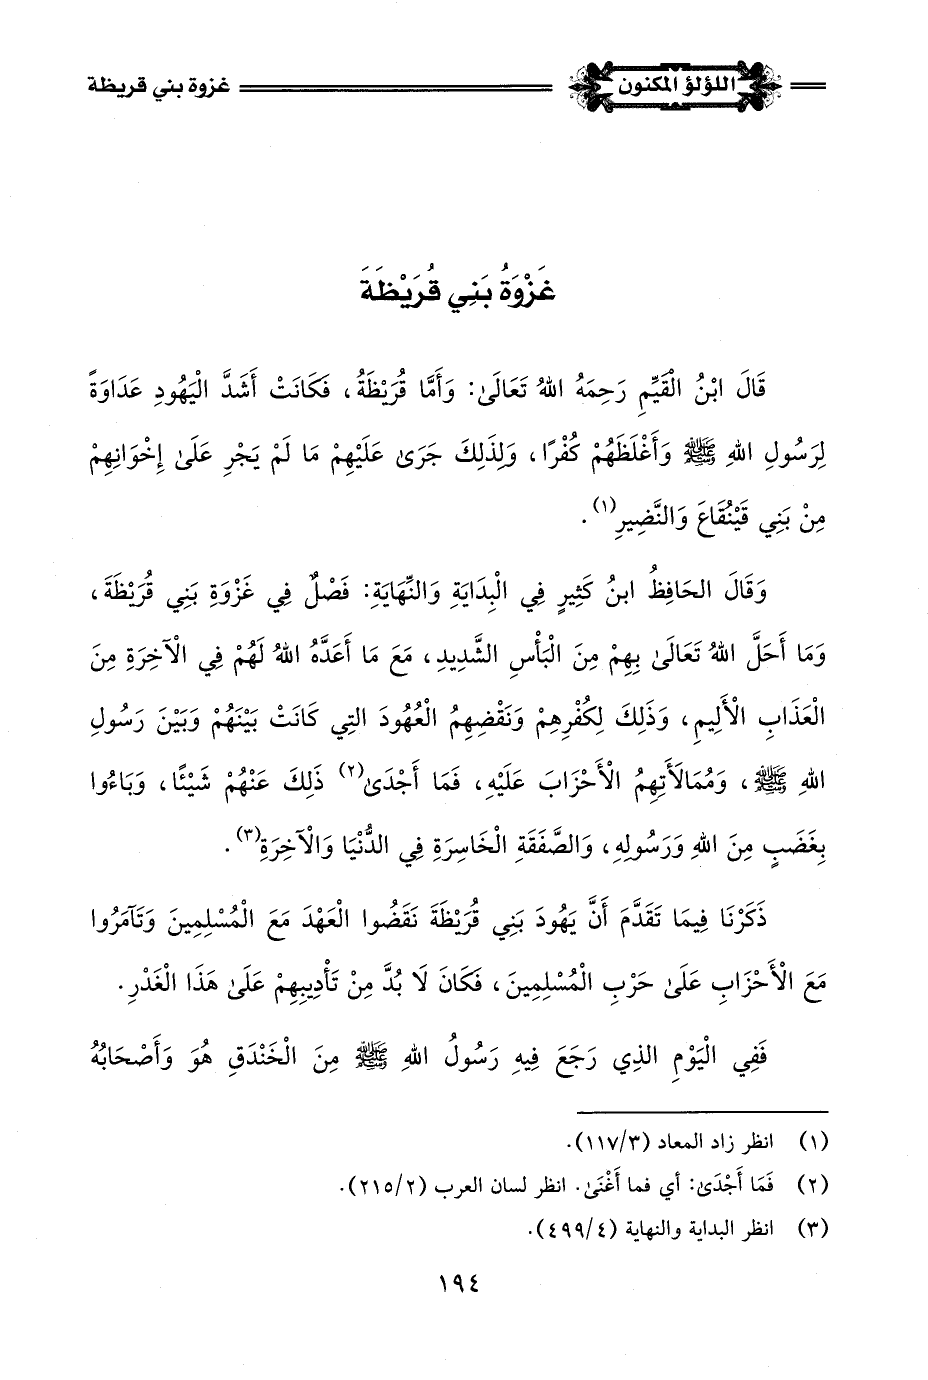 اللؤلؤ المكنون
غزوة بني قريظة
غَزْوَةُ بَنِي قُرَيْظَةَ
قَالَ ابْنُ الْقَيِّمِ رَحِمَهُ اللهُ تَعَالَىٰ: وَأَمَّا قُرَيْظَةُ، فَكَانَتْ أَشَدَّ الْيَهُودِ عَدَاوَةً
لِرَسُولِ اللهِ ﷺ وَأَغْلَظَهُمْ كُفْرًا، وَلِذَلِكَ جَرَىٰ عَلَيْهِمْ مَا لَمْ يَجْرِ عَلَىٰ إِخْوَانِهِمْ
مِنْ بَنِي قَيْنُقَاعَ وَالنَّضِيرِ(١).
وَقَالَ الحَافِظُ ابنُ كَثِيرٍ فِي الْبِدَايَةِ وَالنِّهَايَةِ: فَصْلٌ فِي غَزْوَةِ بَنِي قُرَيْظَةَ،
وَمَا أَحَلَّ اللهُ تَعَالَىٰ بِهِمْ مِنَ الْبَأْسِ الشَّدِيدِ، مَعَ مَا أَعَدَّهُ اللهُ لَهُمْ فِي الْآخِرَةِ مِنَ
الْعَذَابِ الْأَلِيمِ، وَذَلِكَ لِكُفْرِهِمْ وَنَقْضِهِمُ الْعُهُودَ التِي كَانَتْ بَيْنَهُمْ وَبَيْنَ رَسُولِ
اللهِ ﷺ، وَمُمَالَأَتِهِمُ الْأَحْزَابَ عَلَيْهِ، فَمَا أَجْدَىٰ(٢) ذَلِكَ عَنْهُمْ شَيْئًا، وَبَاءُوا
بِغَضَبٍ مِنَ اللهِ وَرَسُولِهِ، وَالصَّفَقَةِ الْخَاسِرَةِ فِي الدُّنْيَا وَالْآخِرَةِ(٣).
ذَكَرْنَا فِيمَا تَقَدَّمَ أَنَّ يَهُودَ بَنِي قُرَيْظَةَ نَقَضُوا الْعَهْدَ مَعَ الْمُسْلِمِينَ وَتَآمَرُوا
مَعَ الْأَحْزَابِ عَلَىٰ حَرْبِ الْمُسْلِمِينَ، فَكَانَ لَا بُدَّ مِنْ تَأْدِيبِهِمْ عَلَىٰ هَذَا الْغَدْرِ.
فَفِي الْيَوْمِ الذِي رَجَعَ فِيهِ رَسُولُ اللهِ ﷺ مِنَ الْخَنْدَقِ هُوَ وَأَصْحَابُهُ
(١) انظر زاد المعاد (١١٧/٣).
(٢) فَمَا أَجْدَىٰ: أي فما أَغْنَىٰ. انظر لسان العرب (٢١٥/٢).
(٣) انظر البداية والنهاية (٤٩٩/٤).
١٩٤